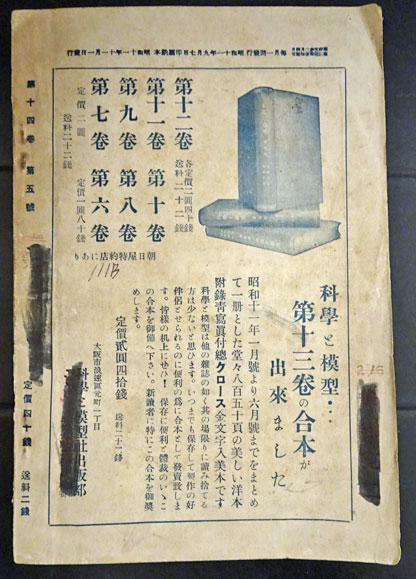 毎月一回發行 昭和十一年九月七日印刷納本 昭和十一年十一月一日發行
第十二卷
各定價二圓四十錢
送料二十二錢
第十一卷 第十卷
第九卷 第八卷
第七卷 第六卷
定價二圓
送料二十二錢
定價一圓八十錢
朝日屋特約店にあり
111B
科學と模型‥
第十三卷の合本が
出來ました
昭和十一年一月號より六月號までをまとめ
て一册とした堂々八百五十頁の美しい洋本
附錄靑寫眞付總クロース金文字入美本です
科學と模型は他の雜誌の如く其の場限りに讀み捨てる
方は少ないと思ひます。いつまでも保存して製作の好
伴侶とせられるのに便利の爲に合本として發賣致しま
す。皆樣の机上にぜひ！保存に便利と體裁のいゝこ
の合本を御備へ下さい。新讀者に特にこの合本を御奬
めします。
定價貳圓四拾錢
送料二十二錢
大阪市浪速區元町一丁目
科學と模型社出版部
第十四卷 第五號
定價四十錢 送料二錢